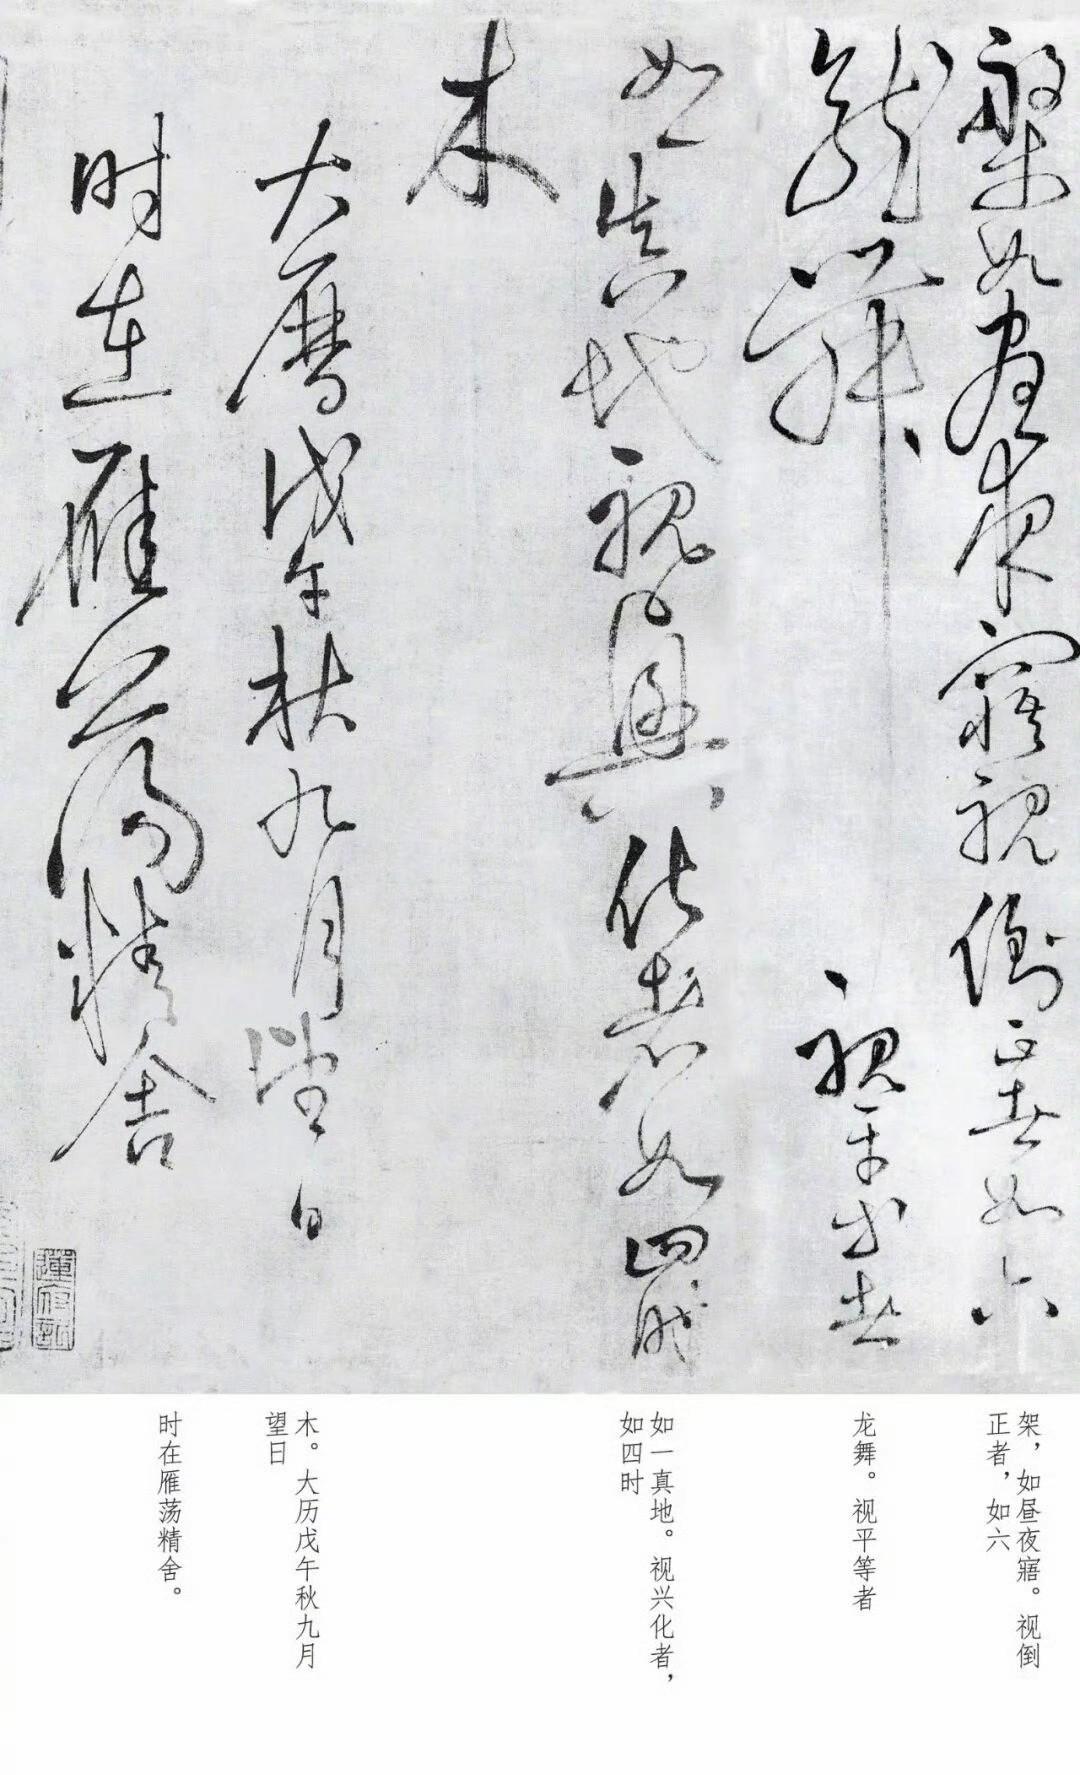 架如晝夜寤視倒正者如六
龍舞視平等者
如一真地視興化者如四時
木
大曆戊午秋九月望日
時在雁蕩精舍
架，如昼夜寤。视倒
正者，如六
龙舞。视平等者
如一真地。视兴化者，
如四时
木。大历戊午秋九月
望日
时在雁荡精舍。